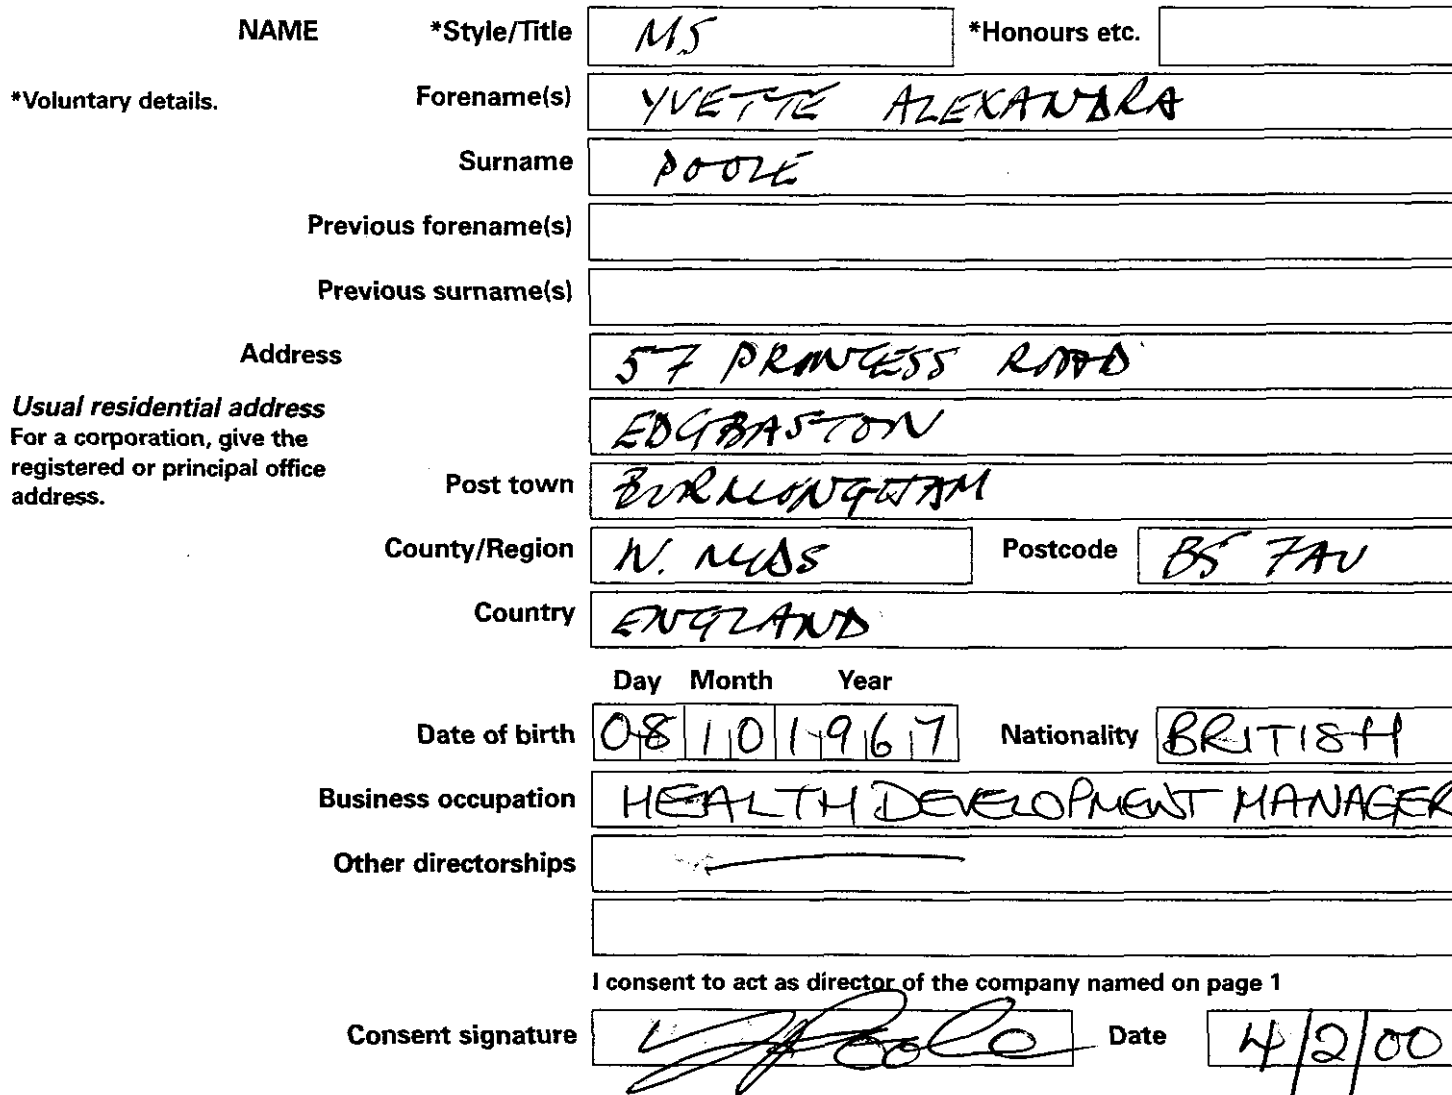 NAME *Style/Title MS *Honours etc.
*Voluntary details. Forename(s) YVETTE ALEXANDRA
Surname POOLE
Previous forename(s)
Previous surname(s)
Address 57 PRINCESS ROAD
Usual residential address
For a corporation, give the
registered or principal office
address.
EDGBASTON
Post town BIRMINGHAM
County/Region W. MIDS Postcode B5 7AU
Country ENGLAND
Day Month Year
Date of birth 08 10 1967 Nationality BRITISH
Business occupation HEALTH DEVELOPMENT MANAGER
Other directorships
I consent to act as director of the company named on page 1
Consent signature Y Poole Date 4/2/00